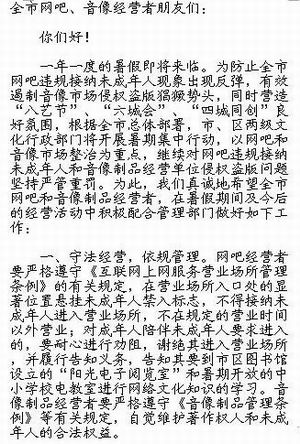 全市网吧、音像经营者朋友们：
你们好！
一年一度的暑假即将来临。为防止全
市网吧违规接纳未成年人现象出现反弹，有效
遏制音像市场侵权盗版猖獗势头，同时营造
“八艺节”、“六城会”、“四城同创”良
好氛围，根据全市总体部署，市、区两级文
化行政部门将开展暑期集中行动，以网吧和
音像市场整治为重点，继续对网吧违规接纳
未成年人和音像制品经营单位侵权盗版问题
坚持严管重罚。为此，我们真诚地希望全市
网吧和音像制品经营者，在暑假期间及今后
的经营活动中积极配合管理部门做好如下工
作：
一、守法经营，依规管理。网吧经营者
要严格遵守《互联网上网服务营业场所管理
条例》的有关规定，在营业场所入口处的显
著位置悬挂未成年人禁入标志，不得接纳未
成年人进入营业场所，不在规定的营业时间
以外营业；对成年人陪伴未成年人要求进入
的，要耐心进行劝阻，谢绝其进入营业场所
，并履行告知义务，告知其要到市区图书馆
设立的“阳光电子阅览室”和暑期开放的中
小学校电教室进行网络文化知识的学习。音
像制品经营者要严格遵守《音像制品管理条
例》等有关规定，自觉维护著作权人和未成
年人的合法权益。